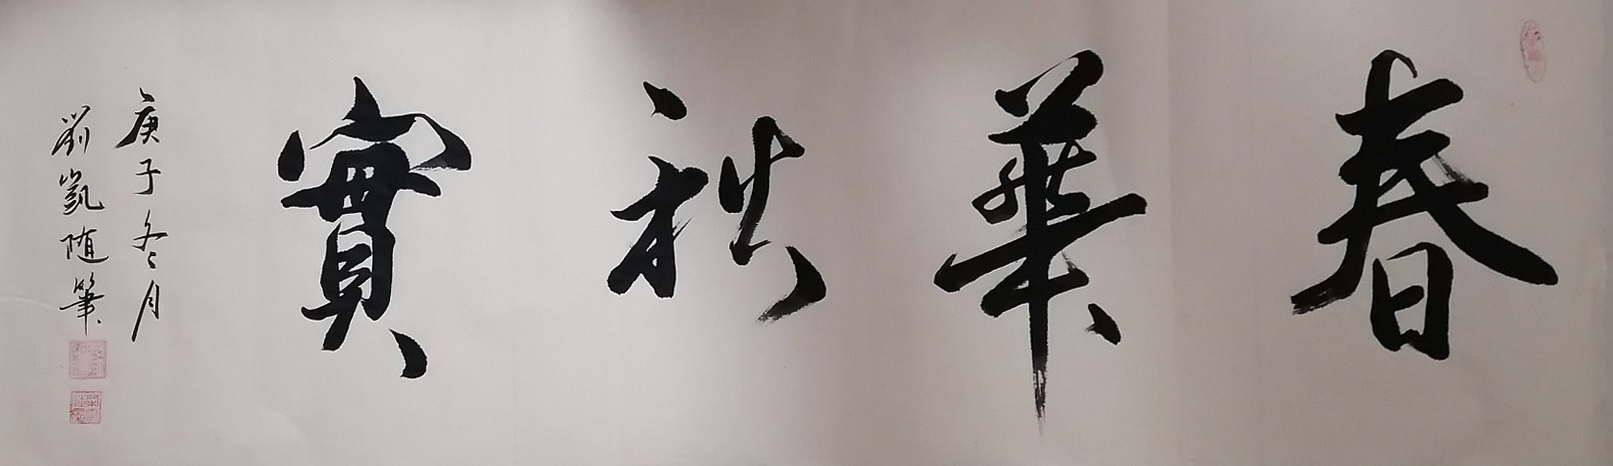 春華秋實
庚子冬月
劉凱随筆